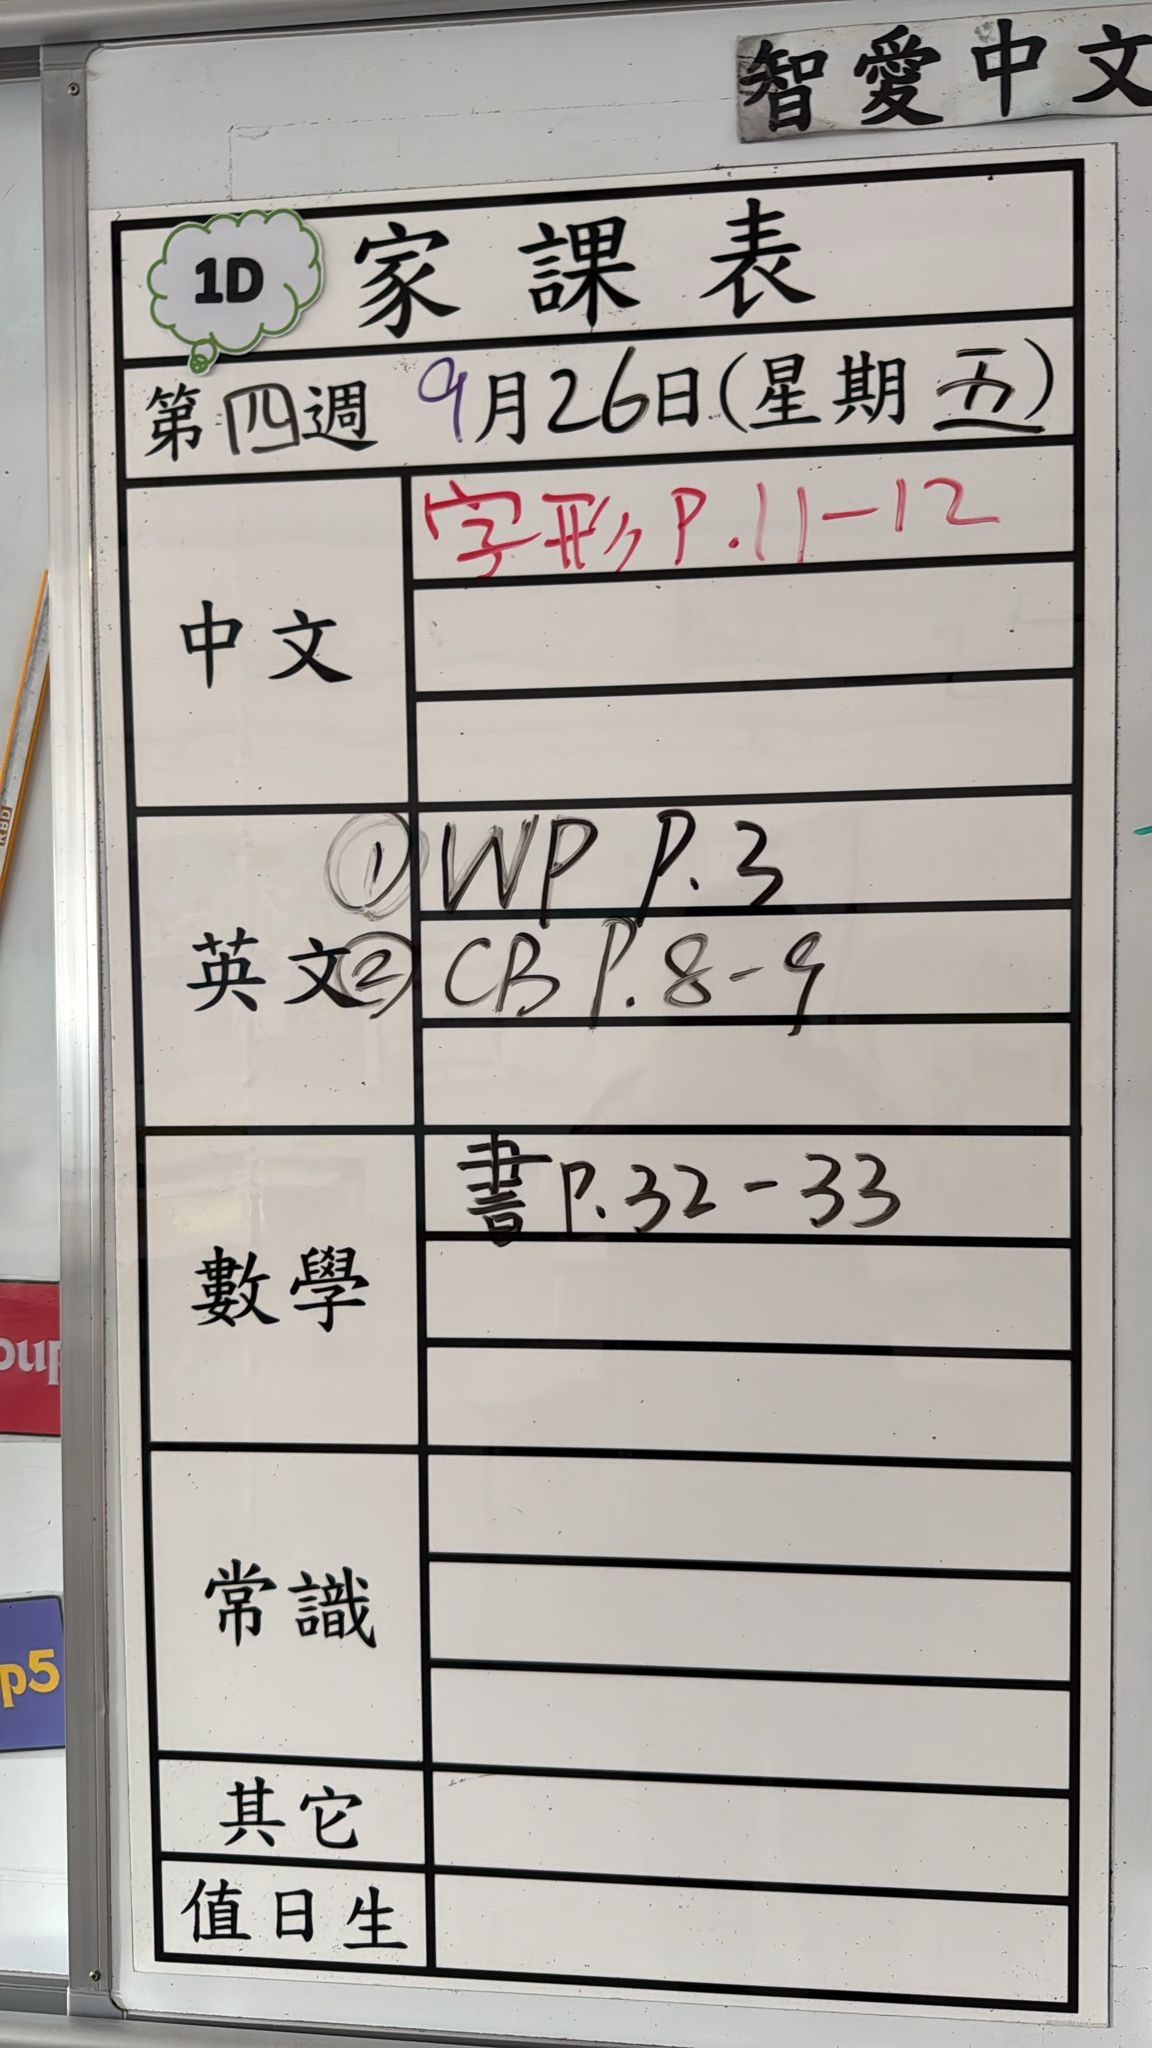 智愛中文
1D 家課表
第四週 9月26日(星期五)
中文
字形 P.11-12
英文
① WP P.3
② CB P.8-9
數學
書 P.32-33
常識
其它
值日生
KBD
oup
p5